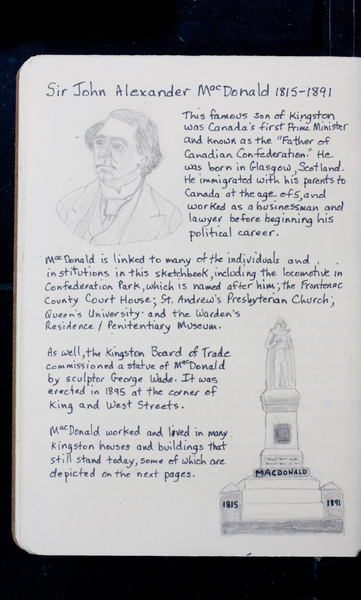 Sir John Alexander MacDonald 1815-1891
This famous son of Kingston
was Canada's first Prime Minister
and known as the "Father of
Canadian Confederation." He
was born in Glasgow, Scotland.
He immigrated with his parents to
Canada at the age of 5, and
worked as a businessman and
lawyer before beginning his
political career.
MacDonald is linked to many of the individuals and
institutions in this sketchbook, including the locomotive in
Confederation Park, which is named after him; the Frontenac
County Court House; St. Andrew's Presbyterian Church;
Queen's University and the Warden's
Residence / Penitentiary Museum.
As well, the Kingston Board of Trade
commissioned a statue of MacDonald
by sculptor George Wade. It was
erected in 1895 at the corner of
King and West Streets.
MacDonald worked and lived in many
Kingston houses and buildings that
still stand today, some of which are
depicted on the next pages.
MACDONALD
1815
1891